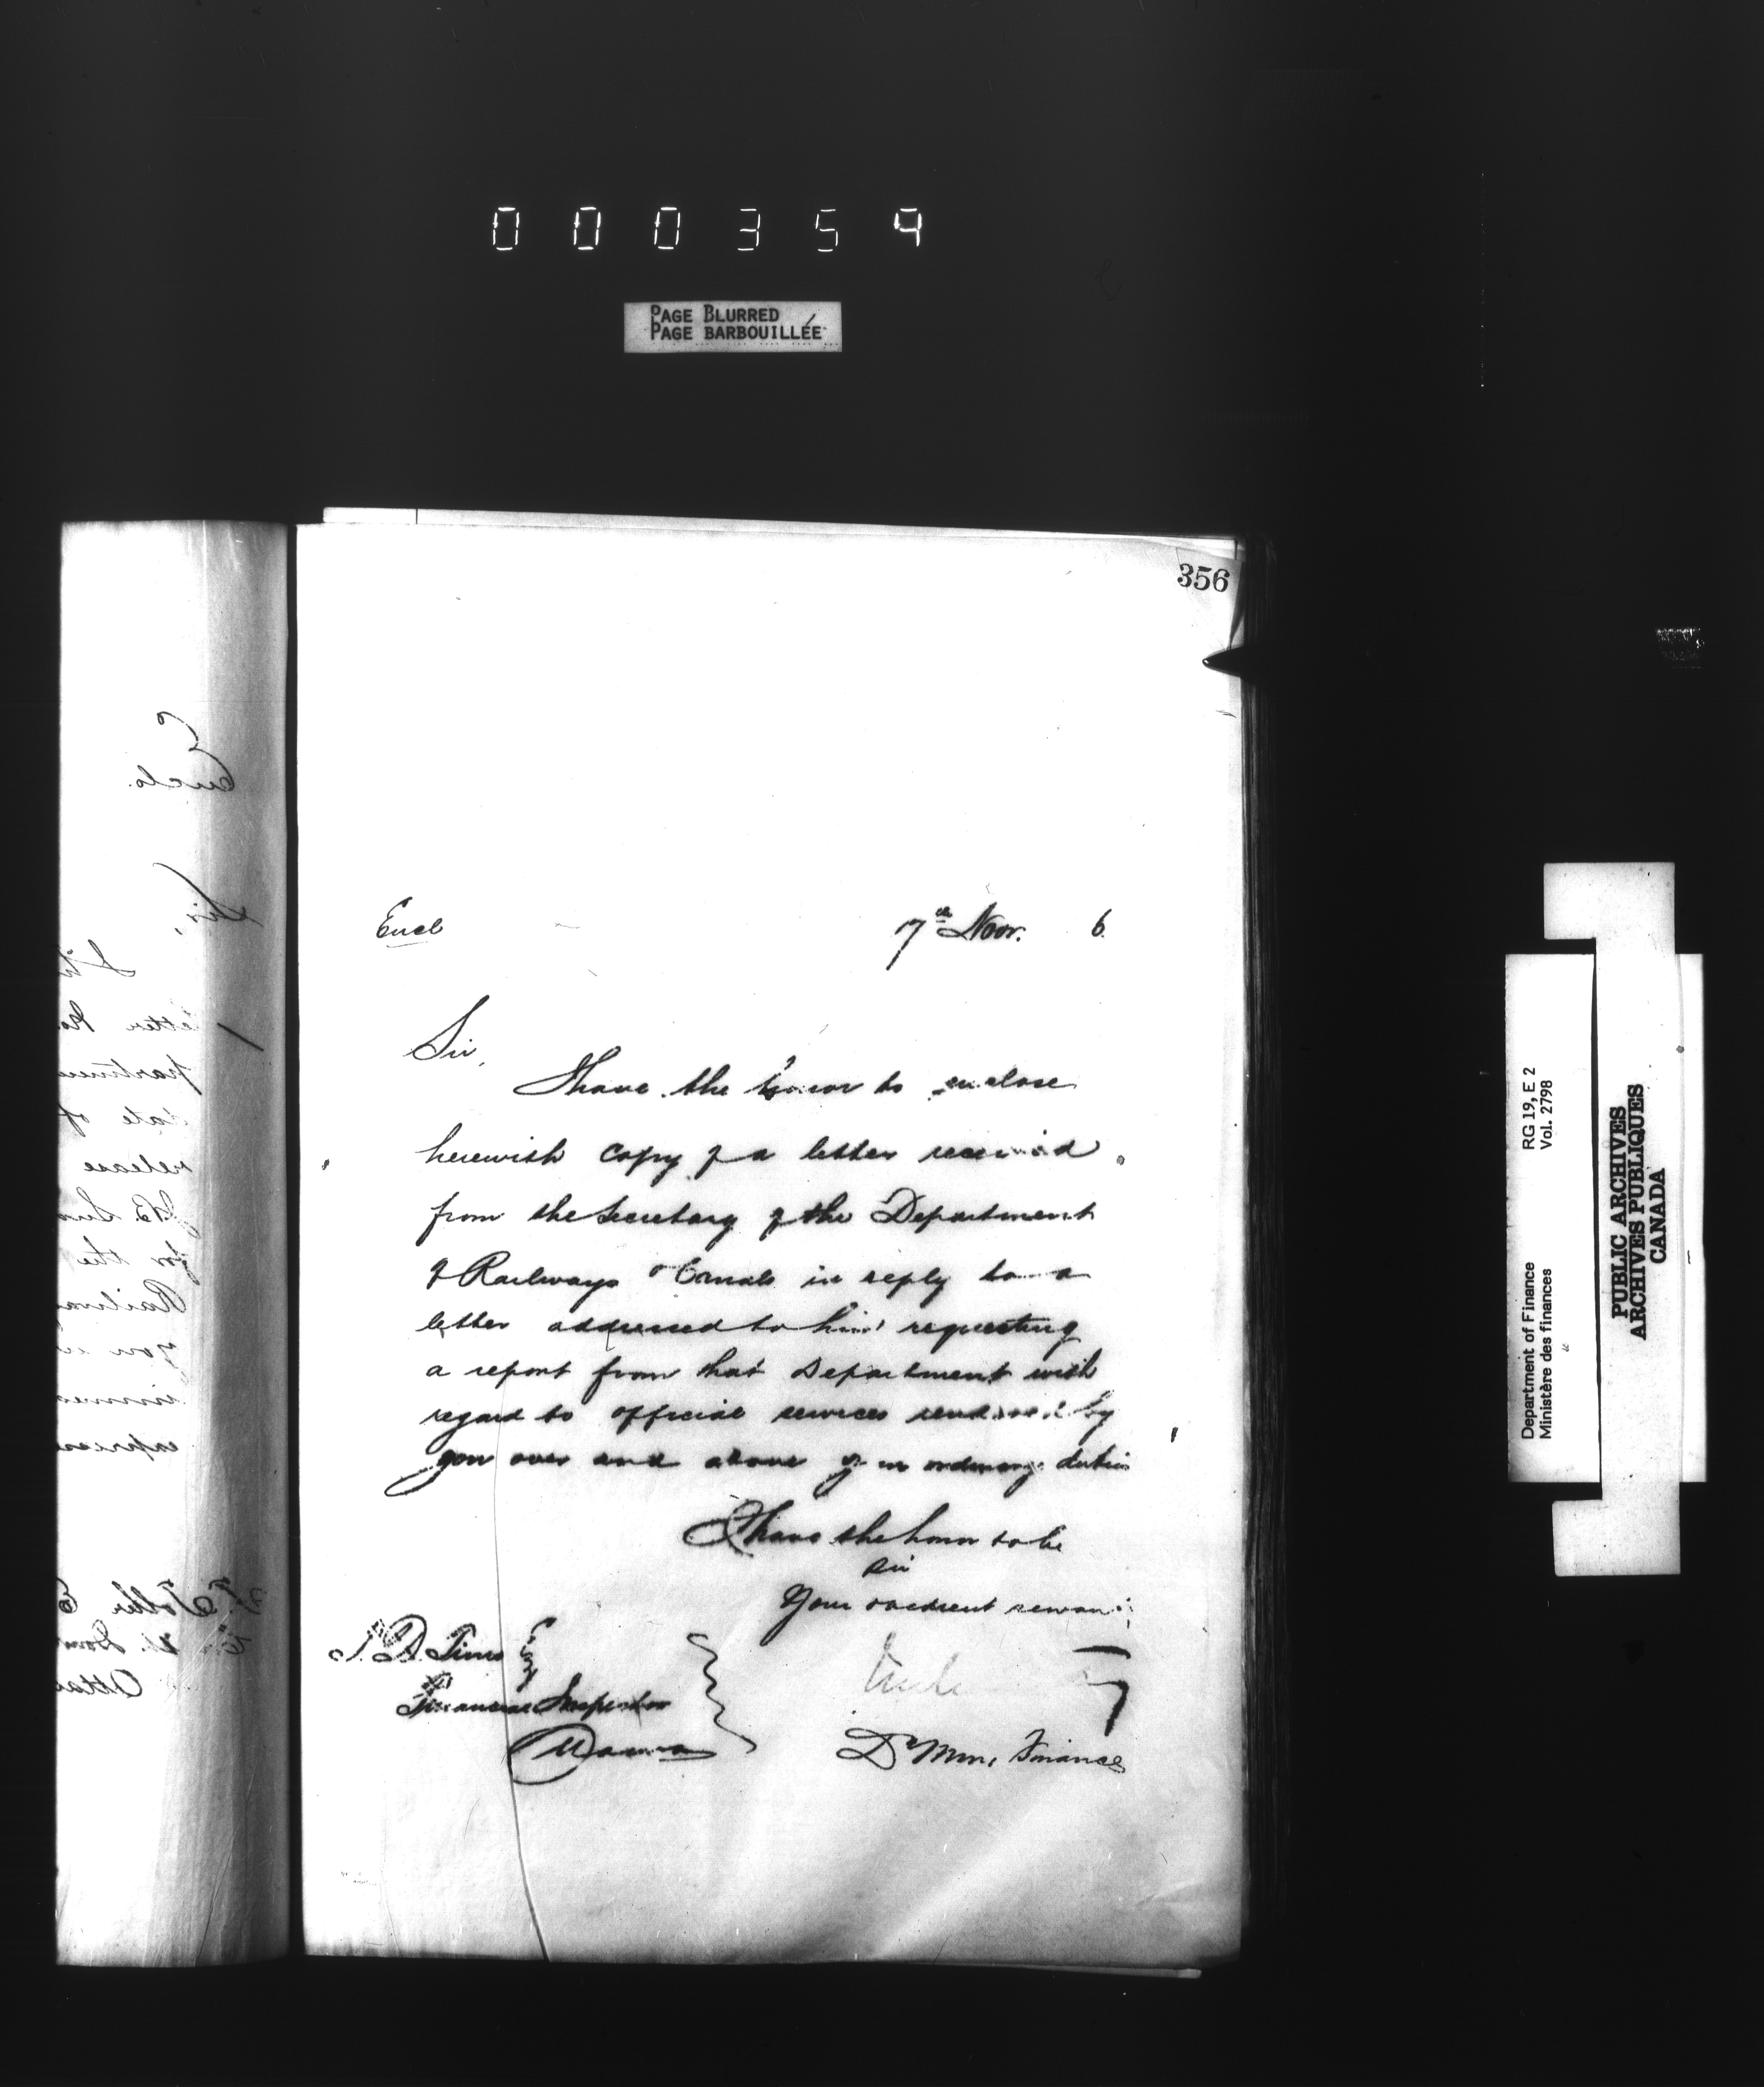 000354
PAGE BLURRED
PAGE BARBOUILLÉE
356
Encl
17th Nov. 6
Sir,
I have the honor to enclose
herewith copy of a letter received
from the Secretary of the Department
of Railways & Canals in reply to a
letter addressed to him requesting
a report from that Department with
regard to official services rendered by
you over and above your ordinary duties
I have the honor to be
Sir
Your obedient servant
J. D. Timms
Financial Inspector
Ottawa
Dy Min, Finance
Department of Finance RG 19, E 2
Ministère des finances Vol. 2798
PUBLIC ARCHIVES
ARCHIVES PUBLIQUES
CANADA
Enclo.
Sir,
letter No.
date of
release
for the
Railway